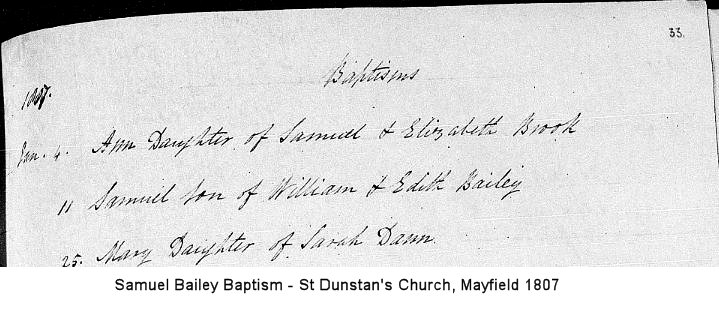 33.
Baptisms
1807.
Jan. 4. Ann Daughter of Samuel & Elizabeth Brook
11 Samuel Son of William & Edith Bailey
25. Mary Daughter of Sarah Dann.
Samuel Bailey Baptism - St Dunstan's Church, Mayfield 1807